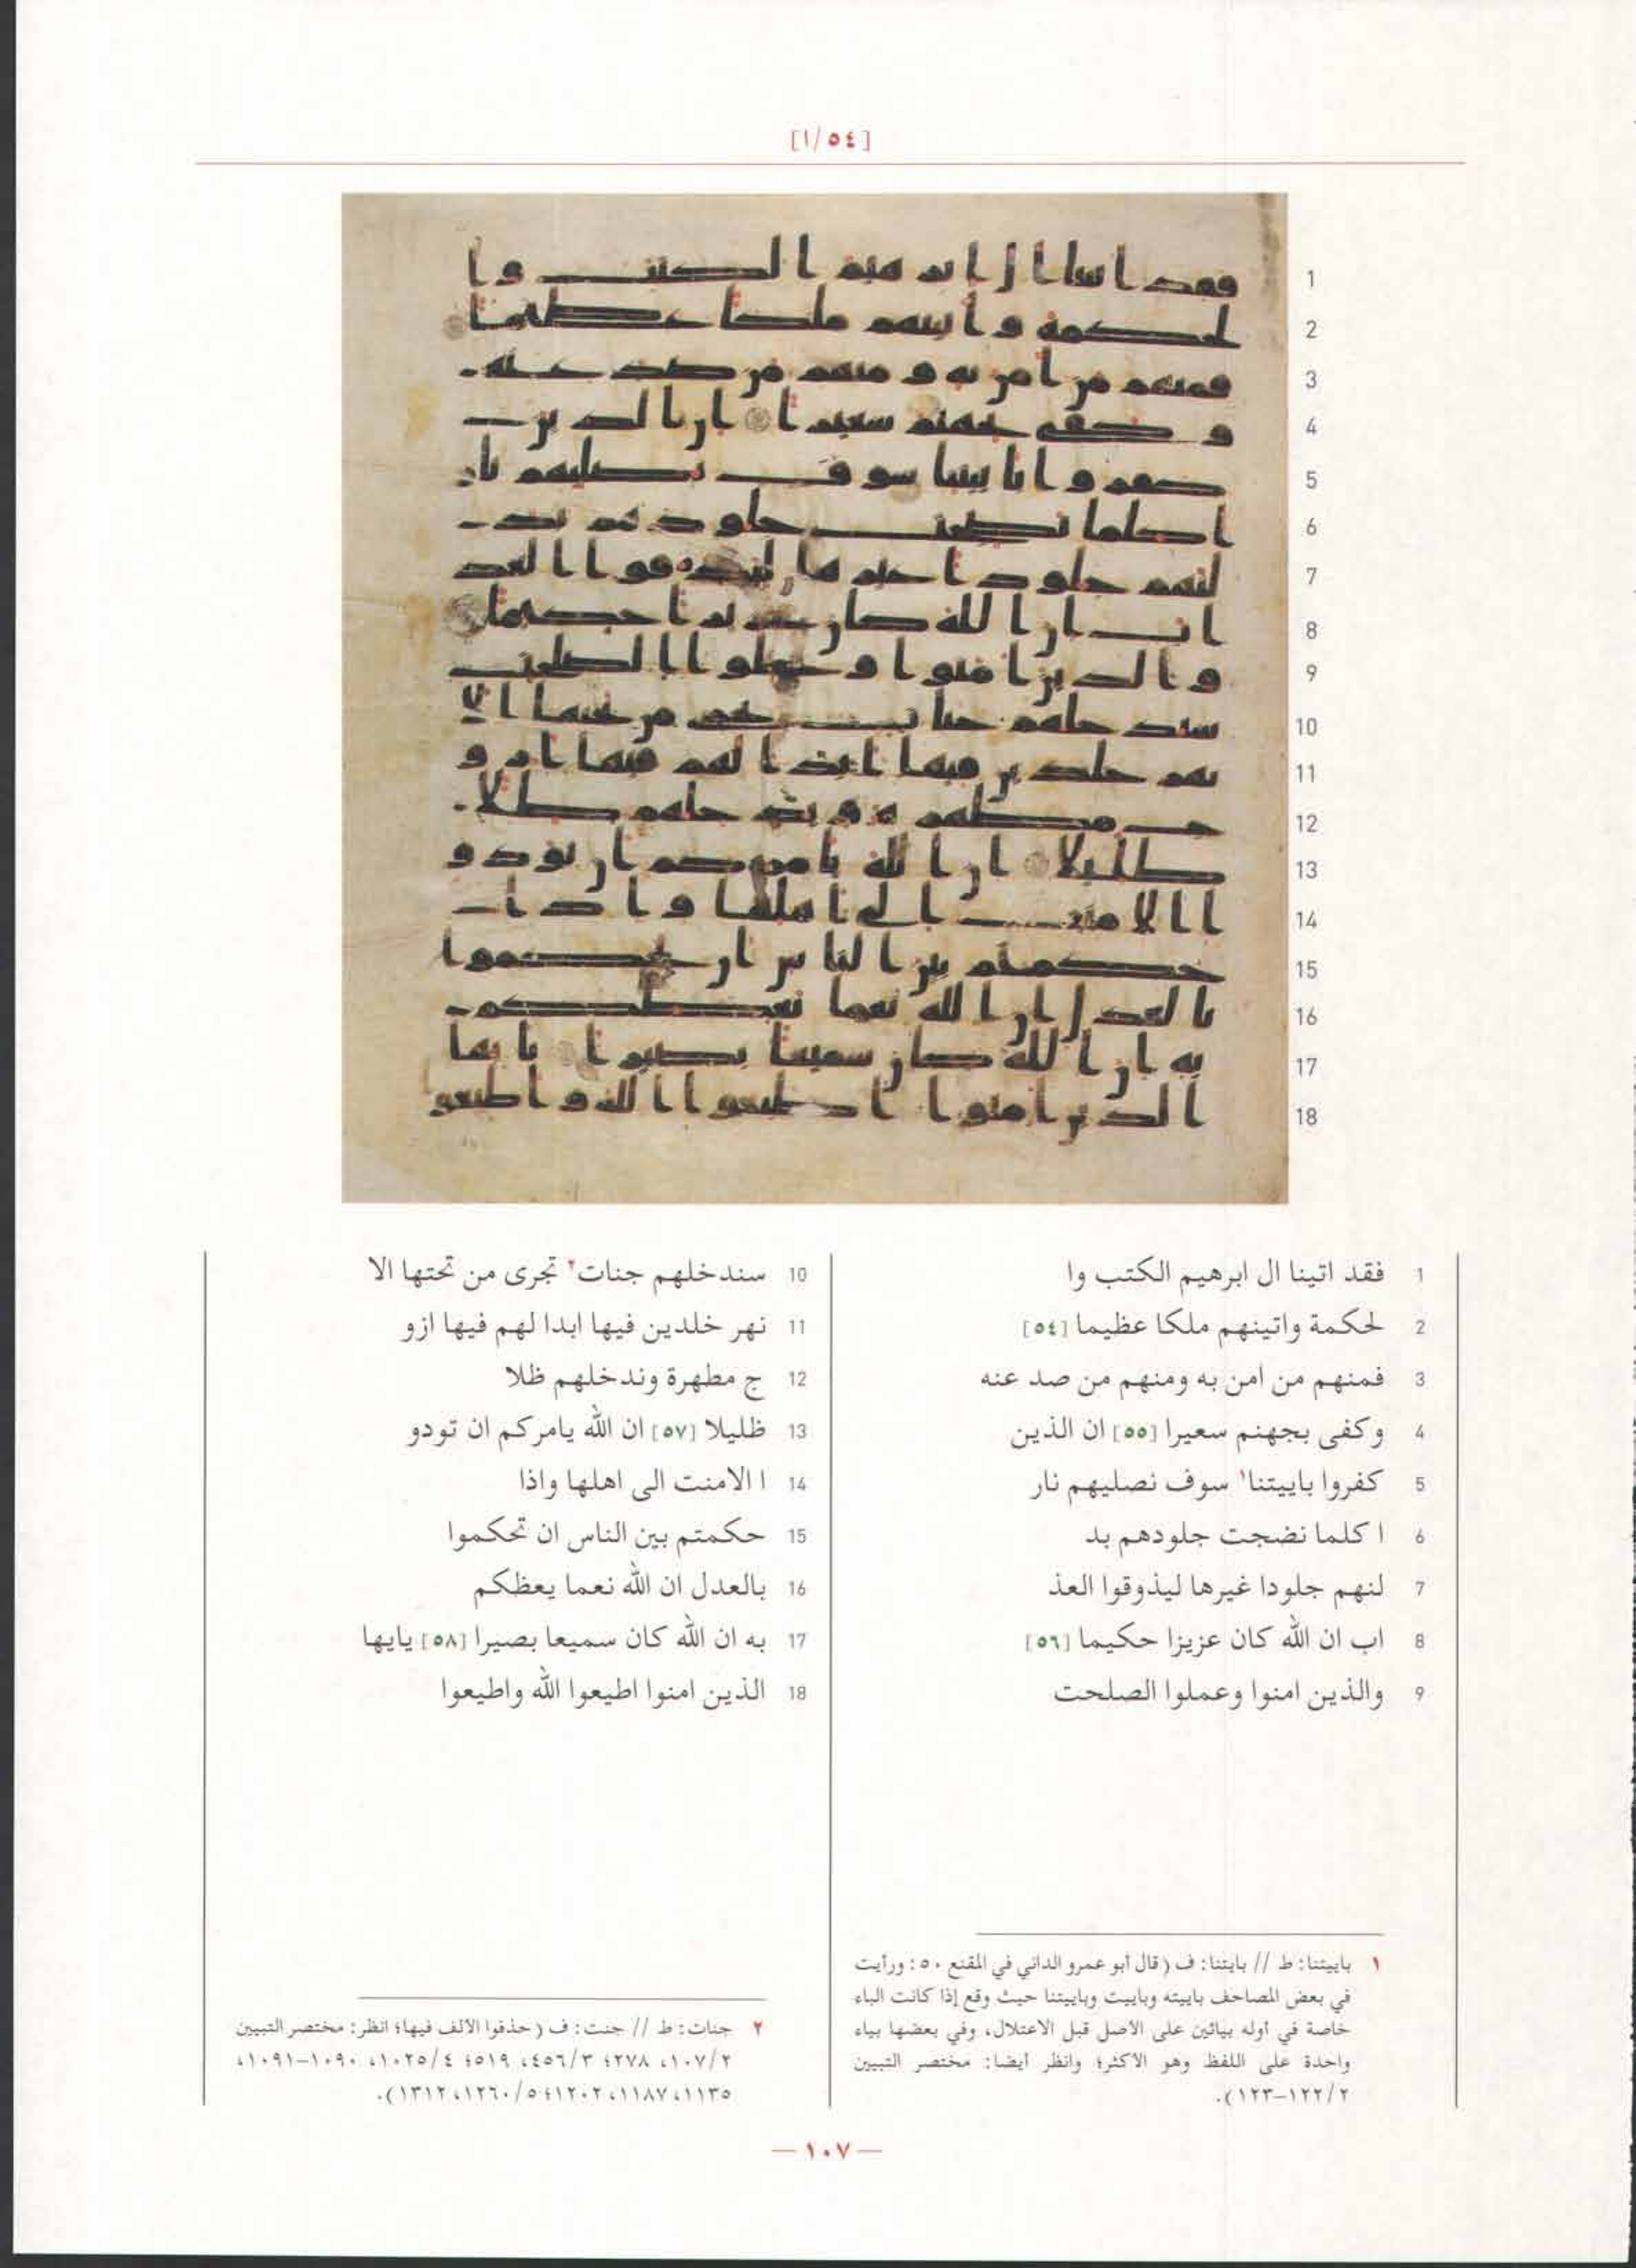 [١/٥٤]
1 فقد اتينا ال ابرهيم الكتب وا
2 لحكمة واتينهم ملكا عظيما [٥٤]
3 فمنهم من امن به ومنهم من صد عنه
4 وكفى بجهنم سعيرا [٥٥] ان الذين
5 كفروا باييتنا١ سوف نصليهم نار
6 ا كلما نضجت جلودهم بد
7 لنهم جلودا غيرها ليذوقوا العذ
8 اب ان الله كان عزيزا حكيما [٥٦]
9 والذين امنوا وعملوا الصلحت
10 سندخلهم جنات٢ تجرى من تحتها الا
11 نهر خلدين فيها ابدا لهم فيها ازو
12 ج مطهرة وندخلهم ظلا
13 ظليلا [٥٧] ان الله يامركم ان تودو
14 ا الامنت الى اهلها واذا
15 حكمتم بين الناس ان تحكموا
16 بالعدل ان الله نعما يعظكم
17 به ان الله كان سميعا بصيرا [٥٨] يايها
18 الذين امنوا اطيعوا الله واطيعوا
١ باييتنا: ط // بايتنا: ف (قال أبو عمرو الداني في المقنع ٥٠: ورأيت
في بعض المصاحف باييته وباييت وباييتنا حيث وقع إذا كانت الباء
خاصة في أوله بيائين على الأصل قبل الاعتلال، وفي بعضها بياء
واحدة على اللفظ وهو الأكثر؛ وانظر أيضا: مختصر التبيين
٢/١٢٢–١٢٣).
٢ جنات: ط // جنت: ف (حذفوا الالف فيها؛ انظر: مختصر التبيين
٢/١٠٧، ٢٧٨؛ ٣/٤٥٦، ٥١٩؛ ٤/١٠٢٥، ١٠٩٠–١٠٩١،
١١٣٥، ١١٨٧، ١٢٠٢؛ ٥/١٢٦٠، ١٣١٢).
— ١٠٧ —